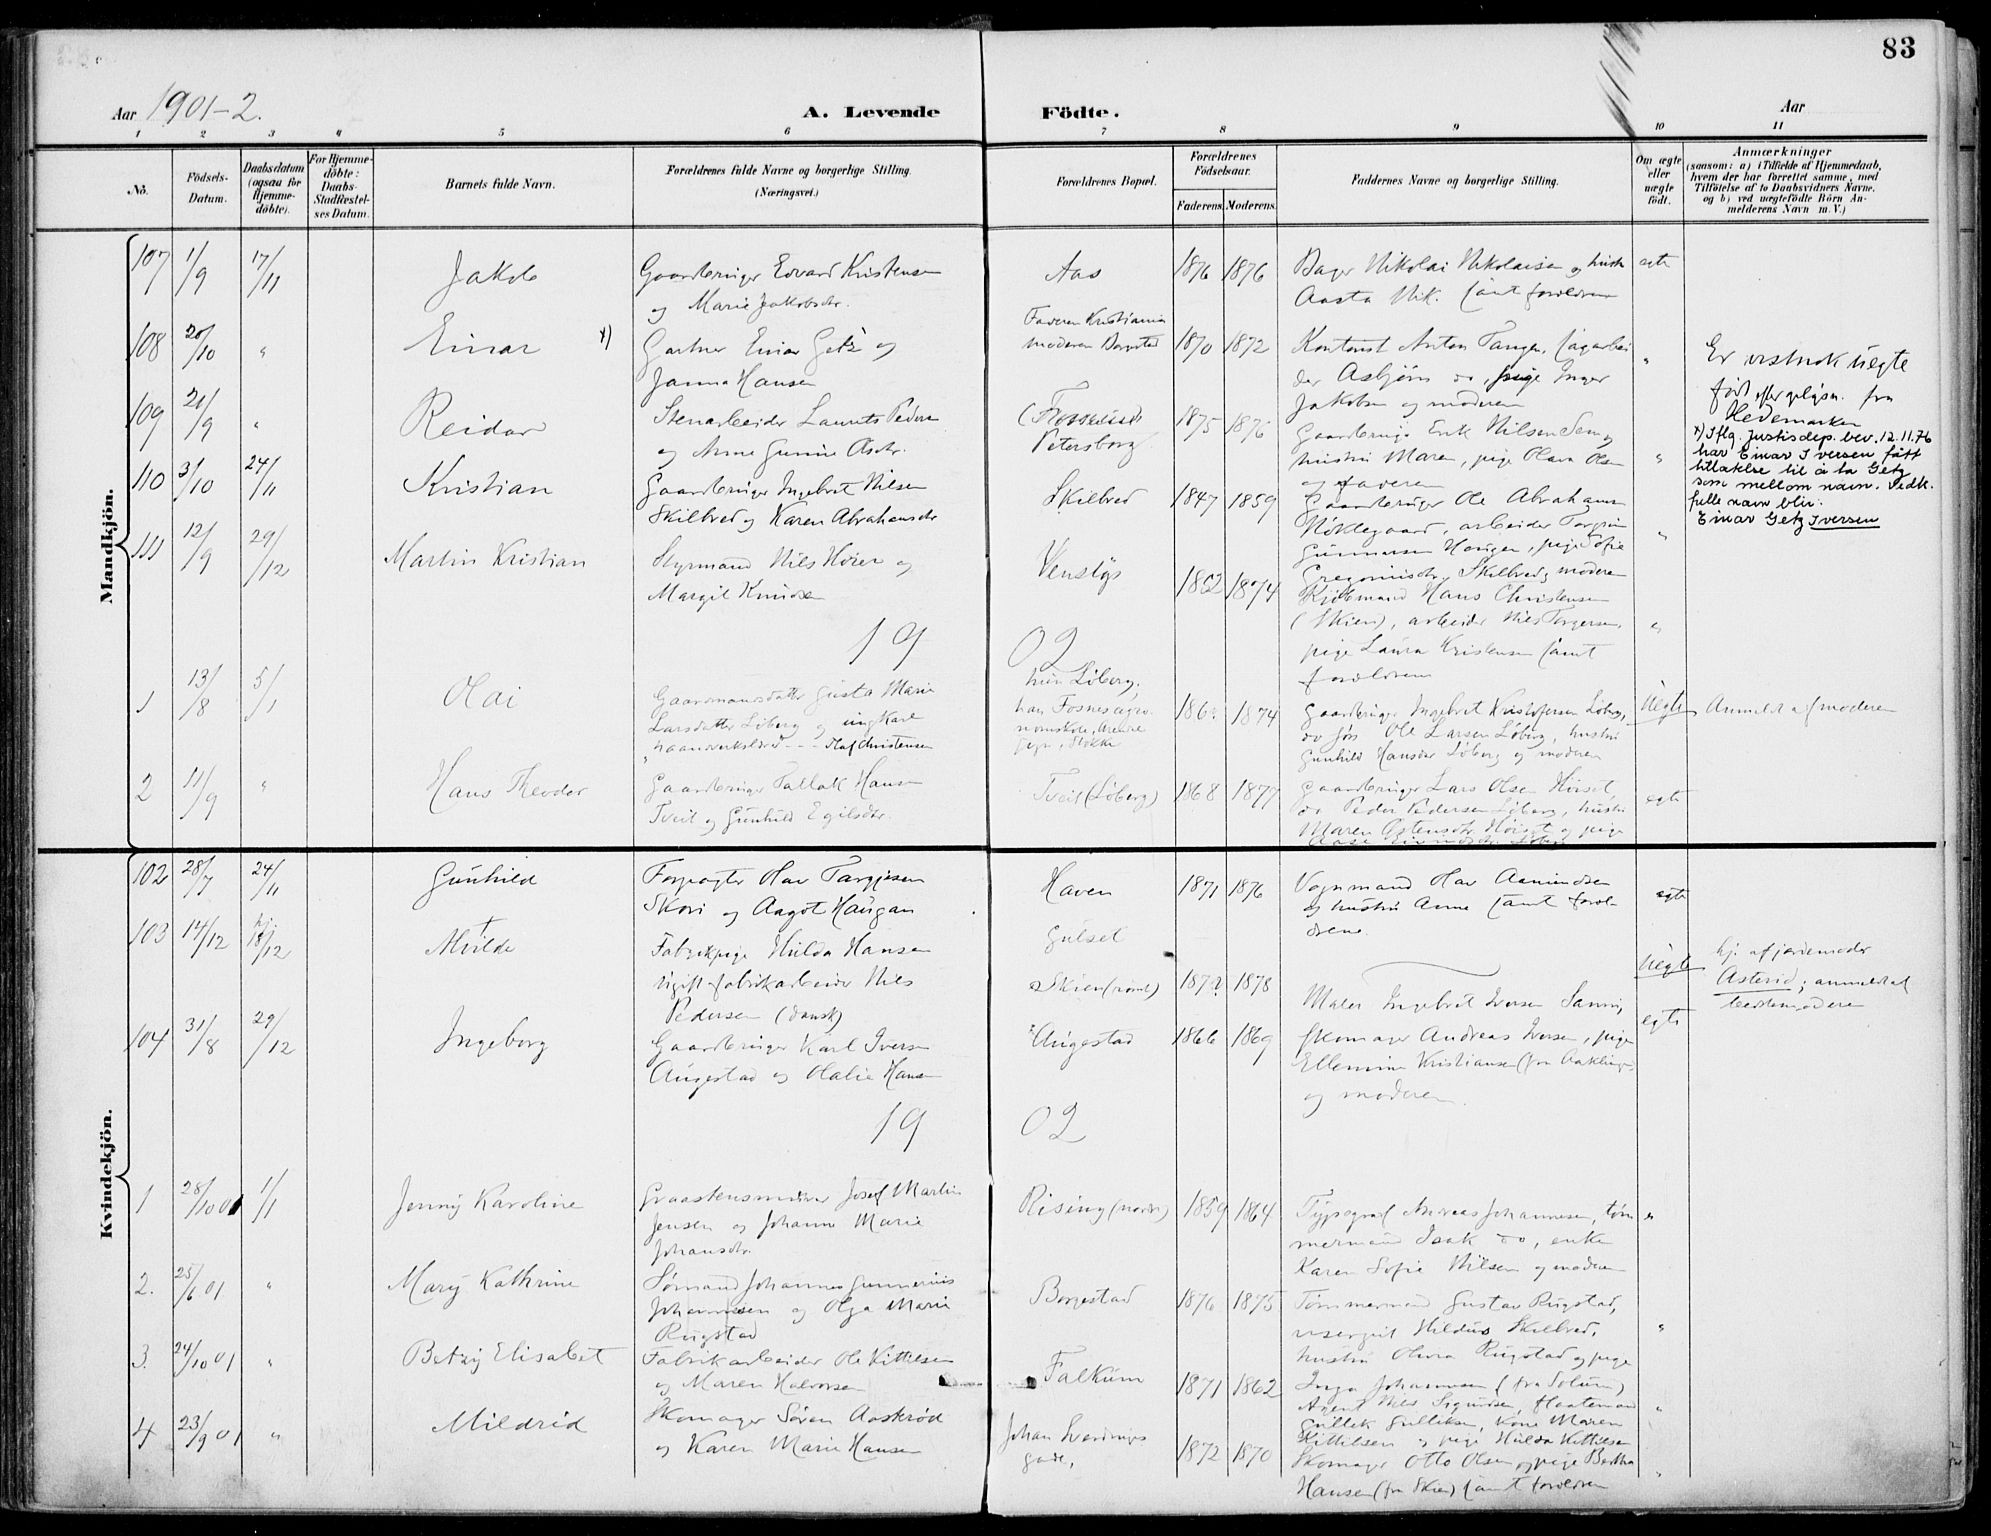 83
Aar 1901-2.
A. Levende Födte.
Aar
1 2 3 4 5 6 7 8 9 10 11
No.
Födsels-Datum.
Daabsdatum (ogsaa for Hjemme-döbte).
For Hjemme-döbte: Daabs-Stadfestel-ses Datum.
Barnets fulde Navn.
Forældrenes fulde Navne og borgerlige Stilling.
(Næringsvei.)
Forældrenes Bopæl.
Forældrenes Födselsaar.
Faderens. Moderens.
Faddernes Navne og borgerlige Stilling.
Om ægte eller uægte födt.
Anmærkninger
(saasom: a) i Tilfælde af Hjemmedaab, hvem der har forrettet samme, med Tilföielse af to Daabsvidners Navne, og b) ved uægtefödte Börn An-melderens Navn m. V.)
Mandkjön.
107 1/9 17/11
Jakob
Gaardbruger Edvard Kristensen
og Marie Jakobsdr.
Aas
1876 1876
Bager Nikolai Nikolaisen og hustru
Aasta Nik. samt forældrene
egte
108 20/10 "
Einar x)
Gartner Einar Getz og
Janna Hansen
Faderen Kristiania
moderen Borgestad
1870 1872
Kontorist Anton Tangen, sagarbei
der Asbjörn do, pige Inger
Jakobsen og moderen
"
Er vistnok uegte
født efter oplysn. fra
Hedemarken
x) Iflg. justisdep. bev. 12.11.76
har Einar Iversen fått
tillatelse til å ta Getz
som mellomnavn. Vedk.
fulle navn blir:
Einar Getz Iversen
109 21/9 "
Reidar
Stenarbeider Laurits Pedersen
og Anne Gurine Asdr.
Petersborg
1875 1876
Gaardbruger Erik Nilsen Sem og
hustru Maren, pige Olava Olsen
og faderen
"
110 3/10 24/11
Kristian
Gaardbruger Ingebret Nilsen
Skilbred og Karen Abrahamsdr
Skilbred
1847 1859
Gaardbruger Ole Abrahamsen
Nöklegaard, arbeider Torgrim
Gunnarsen Haugen, pige Sofie
Gregoriusdr. Skilbred, moderen
"
111 12/9 29/12
Martin Kristian
Styrmand Nils Höier og
Margit Knudsen
Venstöp
1862 1874
Kjöbmand Hans Christensen
(Skien), arbeider Nils Torgersen,
pige Laura Kristensen samt
forældrene
"
19 02
1 13/8 5/1
Olai
Gaardmandsdatter Gusta Marie
Larsdatter Löberg og ungkarl
haandverkslærd - - Olaf Christensen
hun Löberg,
han Fosnes agro-
nomskole, Arendal
pgr., Stokke
1874
Gaardbruger Ingebret Kristofersen Löberg,
do sös Ole Larsen Löberg, hustru
Gunhild Hansdr Löberg og moderen
Uegte
Anmeldt af moderen
2 11/9 "
Hans Theodor
Gaardbruger Tallak Hansen
Tveit og Gunhild Egilsdr.
Tveit (Löberg)
1868 1877
Gaardbruger Lars Olsen Hörset,
do Peder Pedersen Löberg, hustru
Maren Østensdr. Hörset og pige
egte
Kvindekjön.
102 28/7 24/11
Gunhild
Forpagter Olav Targjesen
Skori og Aagot Haugan
Haven
1871 1876
Vognmand Olav Aamundsen
og hustru Anne samt foræl-
drene
egte
103 14/12 hj. 18/12
Milde †
Fabrikpige Hilda Hansen
Ugift fabrikarbeider Nils
Pedersen (dansk)
Gulset
Skien
1872? 1878
Uegte
hj. af jordemoder
Asterid; anmeldt af
bestemoderen
104 31/8 29/12
Ingeborg
Gaardbruger Karl Iversen
Augestad og Olalie Hansen
Augestad
1866 1869
Maler Ingebret Iversen Sanni,
skomager Andreas Iversen, pige
Ellemine Kristiansen (fra Aakling-
og moderen.
egte
19 02
1 28/10 01 1/1
Jenny Karoline
Graastensmurer Josef Martin
Jensen og Johanne Marie
Johansdr.
Rising (nordre)
1859 1864
Typograf Andreas Johannesen, töm
mermand Isak do, enke
Karen Sofie Nilsen og moderen
"
2. 25/6 01 "
Mary Kathrine
Sömand Johannes Gunnerius
Johannesen og Olga Marie
Rugstad
Borgestad
1876 1875
Tömmermand Gustav Rugstad,
visergut Hildus Skilbred,
hustru Olava Rugstad og pige
Inga Johannesen (fra Solum)
"
3. 24/10 01 "
Betzy Elisabet
Fabrikarbeider Ole Kittilsen
og Maren Halvorsen
Falkum
1871 1862
Agent Nils Sigurdsen, flaatemand
Gullik Gulliksen, kone Maren
Kittilsen og pige Hulda Kittilsen
"
4 23/9 01 "
Mildrid
Skomager Sören Aaskröd
og Karen Marie Hansen
Johan Sverdrups
gade,
1872 1870
Skomager Otto Olsen og pige Bertha
Hansen (fra Skien) samt forældrene
"